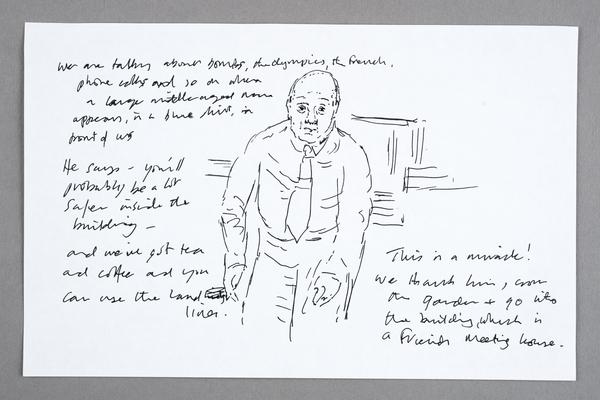 we are talking about bombs, the olympics, the French,
phone calls and so on when
a large middle aged man
appears, in a blue shirt, in
front of us
He says - you'll
probably be a lot
safer inside the
building -
and we've got tea
and coffee and you
can use the land
lines.
This is a miracle!
we thank him, cross
the garden + go into
the building, which is
a Friends Meeting House.